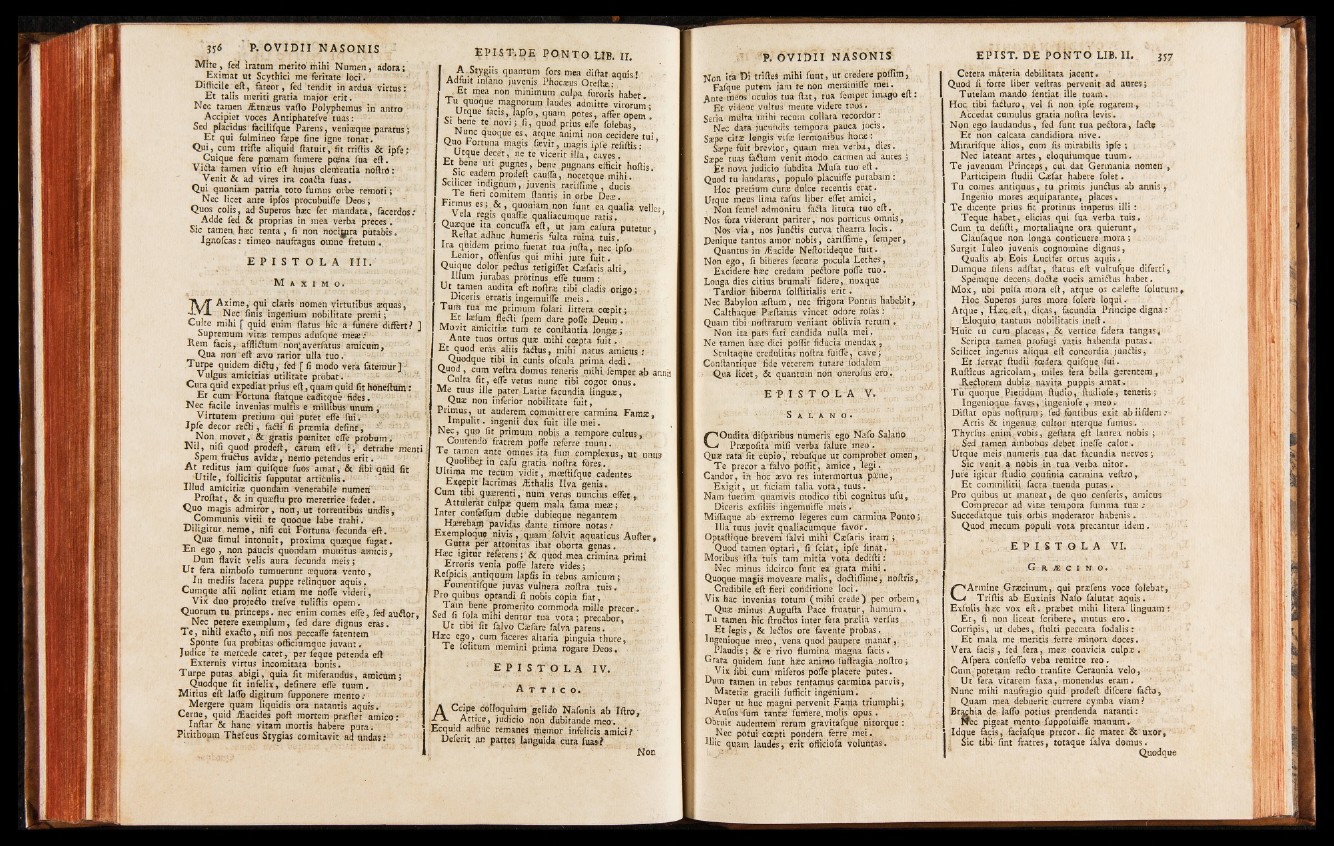 356 P. OVIDII NASONIS
Mite, ſed iratum merito mihi Numen, adora;
Eximat ut Scythici me feritate loci.
Difficile eſt, fateor, ſed tendit in ardua virtus:
Et talis meriti gratia major erit.
Nec tamen Ætnæus vaſto Polyphemus in antro
Accipiet voces Antiphateſve tuas:
Sed placidus faciliſque Parens, veniæque paratus;
Et qui fulmineo ſæpe ſine igne tonat.
Qui, cum triſte aliquid ſtatuit, fit triſtis & ipſe;
Cuique fere pœnam ſumere pœna ſua eſt.
Victa tamen vitio eſt hujus clementia noſtro:
Venit & ad vires ira coacta ſuas.
Qui quoniam patria toto ſumus orbe remoti;
Nec licet ante ipſos procubuiſſe Deos;
Quos colis, ad Superos hæc fer mandata, ſacerdos:
Adde ſed & proprias in mea verba preces.
Sic tamen hæc tenta, ſi non nocitura putabis.
Ignoſcas: timeo naufragus omne fretum.
EPISTOLA III.
MAXIMO.
MAxime, qui claris nomen virtutibus æquas,
Nec ſinis ingenium nobilitate premi;
Culte mihi [ quid enim ſtatus hic a funere differt? ]
Supremum vitæ tempus aduſque meæ:
Rem facis, afflictum non averſatus amicum,
Qua non eſt ævo rarior ulla tuo.
Turpe quidem dictu, ſed [ ſi modo vera fatemur ]
Vulgus amicitias utilitate probat.
Cura quid expediat prius eſt, quam quid ſit honeſtum:
Et cum Fortuna ſtatque caditque fides.
Nec facile invenias multis e millibus unum,
Virtutem pretium qui putet eſſe ſui.
Ipſe decor recti, facti ſi præmia deſint,
Non movet, & gratis pœnitet eſſe probum.
Nil, niſi quod prodeſt, carum eſt. i, detrahe menti
Spem fructus avidæ, nemo petendus erit.
At reditus jam quiſque ſuos amat, & ſibi quid ſit
Utile, ſollicitis ſupputat articulis.
Illud amicitiæ quondam venerabile numen
Proſtat, & in quæſtu pro meretrice ſedet.
Quo magis admiror, non, ut torrentibus undis,
Communis vitii te quoque labe trahi.
Diligitur nemo, niſi cui Fortuna ſecunda eſt.
Quæ ſimul intonuit, proxima quæque fugat.
En ego, non paucis quondam munitus amicis,
Dum flavit velis aura ſecunda meis;
Ut fera nimboſo tumuerunt æquora vento,
In mediis lacera puppe relinquor aquis.
Cumque alii nolint etiam me noſſe videri,
Vix duo projecto treſve tuliſtis opem.
Quorum tu princeps. nec enim comes eſſe, ſed auctor,
Nec petere exemplum, ſed dare dignus eras.
Te, nihil exacto, niſi nos peccaſſe fatentem
Sponte ſua probitas officiumque juvant.
Judice te mercede caret, per ſeque petenda eſt
Externis virtus incomitata bonis.
Turpe putas abigi, quia ſit miſerandus, amicum;
Quodque ſit infelix, deſinere eſſe tuum.
Mitius eſt laſſo digitum ſupponere mento:
Mergere quam liquidis ora natantis aquis.
Cerne, quid Æacides poſt mortem præſtet amico:
Inſtar & hanc vitam mortis habere puta.
Pirithoum Theſeus Stygias comitavit ad undas:
EPIST. DE PONTO LIB. II.
A Stygiis quantum ſors mea diſtat aquis!
Adfuit inſano juvenis Phocæus Oreſtæ:
Et mea non minimum culpa furoris habet.
Tu quoque magnorum laudes admitte virorum;
Utque facis, lapſo, quam potes, affer opem.
Si bene te novi; ſi, quod prius eſſe ſolebas,
Nunc quoque es, atque animi non cecidere tui,
Quo Fortuna magis ſævit, magis ipſe reſiſtis:
Utque decet, ne te vicerit illa, caves.
Et bene uti pugnes, bene pugnans efficit hoſtis.
Sic eadem prodeſt cauſſa, nocetque mihi.
Scilicet indignum, juvenis rariſſime, ducis
Te fieri comitem ſtantis in orbe Deæ.
Firmus es; &, quoniam non ſunt ea qualia velles,
Vela regis quaſſæ qualiacumque ratis.
Quæque ita concuſſa eſt, ut jam caſura putetur,
Reſtat adhuc humeris fulta ruina tuis.
Ira quidem primo fuerat tua juſta, nec ipſo
Lenior, offenſus qui mihi jure fuit.
Quique dolor pectus tetigiſſet Cæſaris alti,
Illum jurabas protinus eſſe tuum:
Ut tamen audita eſt noſtræ tibi cladis origo;
Diceris erratis ingemuiſſe meis.
Tum tua me primum ſolari littera cœpit;
Et læſum flecti ſpem dare poſſe Deum.
Movit amicitiæ tum te conſtantia longæ;
Ante tuos ortus quæ mihi cœpta fuit.
Et quod eras aliis factus, mihi natus amicus:
Quodque tibi in cunis oſcula prima dedi.
Quod, cum veſtra domus teneris mihi ſemper ab annis
Culta ſit, eſſe vetus nunc tibi cogor onus.
Me tuus ille pater Latiæ facundia linguæ,
Quæ non inferior nobilitate fuit,
Primus, ut auderem committere carmina Famæ,
Impulit. ingenii dux fuit ille mei.
Nec, quo ſit primum nobis a tempore cultus,
Contendo fratrem poſſe referre tuum.
Te tamen ante omnes ita ſum complexus, ut unus
Quolibet in caſu gratia noſtra fores.
Ultima me tecum vidit, mœſtiſque cadentes
Excepit lacrimas Æthalis Ilva genis.
Cum tibi quærenti, num verus nuncius eſſet,
Attulerat culpæ quem mala fama meæ;
Inter confeſſum dubie dubieque negantem
Hærebam pavidas dante timore notas:
Exemploque nivis, quam ſolvit aquaticus Auſter,
Gutta per attonitas ibat oborta genas.
Hæc igitur referens; & quod mea crimina primi
Erroris venia poſſe latere vides;
Reſpicis antiquum lapſis in rebus amicum;
Fomentiſque juvas vulnera noſtra tuis.
Pro quibus optandi ſi nobis copia fiat,
Tam bene promerito commoda mille precer.
Sed ſi ſola mihi dentur tua vota; precabor,
Ut tibi ſit ſalvo Cæſare ſalva parens.
Hæc ego, cum faceres altaria pinguia thure,
Te ſolitum memini prima rogare Deos.
EPISTOLA IV.
ATTICO.
ACcipe colloquium gelido Naſonis ab Iſtro,
Attice, judicio non dubitande meo.
Ecquid adhuc remanes memor infelicis amici?
Deſerit an partes languida cura ſuas?
Non
P. OVIDII NASONIS
Non ita Di triſtes mihi ſunt, ut credere poſſim,
Faſque putem jam te non meminiſſe mei.
Ante meos oculos tua ſtat, tua ſemper imago eſt:
Et videor vultus mente videre tuos.
Seria multa mihi tecum collata recordor:
Nec data jucundis tempora pauca jocis.
Sæpe citæ longis viſæ ſermonibus horæ:
Sæpe fuit brevior, quam mea verba, dies.
Sæpe tuas factum venit modo carmen ad aures;
Et nova judicio ſubdita Muſa tuo eſt.
Quod tu laudaras, populo placuiſſe putabam:
Hoc pretium curæ dulce recentis erat.
Utque meus lima raſus liber eſſet amici,
Non ſemel admonitu facta litura tuo eſt.
Nos fora viderunt pariter, nos porticus omnis,
Nos via, nos junctis curva theatra locis.
Denique tantus amor nobis, cariſſime, ſemper,
Quantus in Æacide Neſtorideque fuit.
Non ego, ſi biberes ſecuræ pocula Lethes,
Excidere hæc credam pectore poſſe tuo.
Longa dies citius brumali ſidere, noxque
Tardior hiberna ſolſtitialis erit.
Nec Babylon æſtum, nec frigora Pontus habebit,
Calthaque Pæſtanas vincet odore roſas:
Quam tibi noſtrarum veniant oblivia rerum.
Non ita pars fati candida nulla mei.
Ne tamen hæc dici poſſit fiducia mendax,
Stultaque credulitas noſtra fuiſſe, cave;
Conſtantique fide veterem tutare ſodalem
Qua licet, & quantum non oneroſus ero.
EPISTOLA V.
SALANO.
COndita diſparibus numeris ego Naſo Salano
Præpoſita miſi verba ſalute meo.
Quæ rata ſit cupio, rebuſque ut comprobet omen,
Te precor a ſalvo poſſit, amice, legi.
Candor, in hoc ævo res intermortua pæne,
Exigit, ut faciam talia vota, tuus.
Nam fuerim quamvis modico tibi cognitus uſu,
Diceris exſiliis ingemuiſſe meis.
Miſſaque ab extremo legeres cum carmina Ponto;
Illa tuus juvit qualiacumque favor.
Optaſtique brevem ſalvi mihi Cæſaris iram;
Quod tamen optari, ſi ſciat, ipſe ſinat.
Moribus iſta tuis tam mitia vota dediſti:
Nec minus idcirco ſunt ea grata mihi.
Quoque magis moveare malis, doctiſſime, noſtris,
Credibile eſt fieri conditione loci.
Vix hac invenias totum (mihi crede) per orbem,
Quæ minus Auguſta Pace fruatur, humum.
Tu tamen hic ſtructos inter fera prælia verſus
Et legis, & lectos ore favente probas.
Ingenioque meo, vena quod paupere manat,
Plaudis; & e rivo flumina magna facis.
Grata quidem ſunt hæc animo ſuffragia noſtro;
Vix ſibi cum miſeros poſſe placere putes.
Dum tamen in rebus tentamus carmina parvis,
Materiæ gracili ſufficit ingenium.
Nuper ut huc magni pervenit Fama triumphi;
Auſus ſum tantæ ſumere molis opus.
Obruit audentem rerum gravitaſque nitorque:
Nec potui cœpti pondera ferre mei.
Illic quam laudes, erit officioſa voluntas.
EPIST. DE PONTO LIB. II. 357
Cetera materia debilitata jacent.
Quod ſi forte liber veſtras pervenit ad aures;
Tutelam mando ſentiat ille tuam.
Hoc tibi facturo, vel ſi non ipſe rogarem,
Accedat cumulus gratia noſtra levis.
Non ego laudandus, ſed ſunt tua pectora, lacte
Et non calcata candidiora nive.
Mirariſque alios, cum ſis mirabilis ipſe;
Nec lateant artes, eloquiumque tuum.
Te juvenum Princeps, cui dat Germania nomen,
Participem ſtudii Cæſar habere ſolet.
Tu comes antiquus, tu primis junctus ab annis,
Ingenio mores æquiparante, places.
Te dicente prius fit protinus impetus illi:
Teque habet, elicias qui ſua verba tuis.
Cum tu deſiſti, mortaliaque ora quierunt,
Clauſaque non longa conticuere mora;
Surgit Iuleo juvenis cognomine dignus,
Qualis ab Eois Lucifer ortus aquis.
Dumque ſilens adſtat, ſtatus eſt vultuſque diſerti,
Spemque decens doctæ vocis amictus habet.
Mox, ubi pulſa mora eſt, atque os cæleſte ſolutum,
Hoc Superos jures more ſolere loqui.
Atque, Hæc eſt, dicas, facundia Principe digna:
Eloquio tantum nobilitatis ineſt.
Huic tu cum placeas, & vertice ſidera tangas,
Scripta tamen profugi vatis habenda putas.
Scilicet ingeniis aliqua eſt concordia junctis,
Et ſervat ſtudii fœdera quiſque ſui.
Ruſticus agricolam, miles fera bella gerentem,
Rectorem dubiæ navita puppis amat.
Tu quoque Pieridum ſtudio, ſtudioſe, teneris;
Ingenioque faves, ingenioſe, meo.
Diſtat opus noſtrum; ſed fontibus exit ab iiſdem:
Artis & ingenuæ cultor uterque ſumus.
Thyrſus enim vobis, geſtata eſt laurea nobis;
Sed tamen ambobus debet ineſſe calor.
Utque meis numeris tua dat facundia nervos;
Sic venit a nobis in tua verba nitor.
Jure igitur ſtudio confinia carmina veſtro,
Et commilitii ſacra tuenda putas.
Pro quibus ut maneat, de quo cenſeris, amicus
Comprecor ad vitæ tempora ſumma tuæ:
Succedatque tuis orbis moderator habenis.
Quod mecum populi vota precantur idem.
EPISTOLA VI.
GRÆCINO.
CArmine Græcinum, qui præſens voce ſolebat,
Triſtis ab Euxinis Naſo ſalutat aquis.
Exſulis hæc vox eſt. præbet mihi litera linguam:
Et, ſi non liceat ſcribere, mutus ero.
Corripis, ut debes, ſtulti peccata ſodalis:
Et mala me meritis ferre minora doces.
Vera facis, ſed ſera, meæ convicia culpæ.
Aſpera confeſſo veba remitte reo.
Cum poteram recto tranſire Ceraunia velo,
Ut fera vitarem ſaxa, monendus eram.
Nunc mihi naufragio quid prodeſt diſcere facto,
Quam mea debuerit currere cymba viam?
Brachia da laſſo potius prendenda natanti:
Nec pigeat mento ſuppoſuiſſe manum.
Idque facis, faciaſque precor. ſic mater & uxor,
Sic tibi ſint fratres, totaque ſalva domus.
Quodque